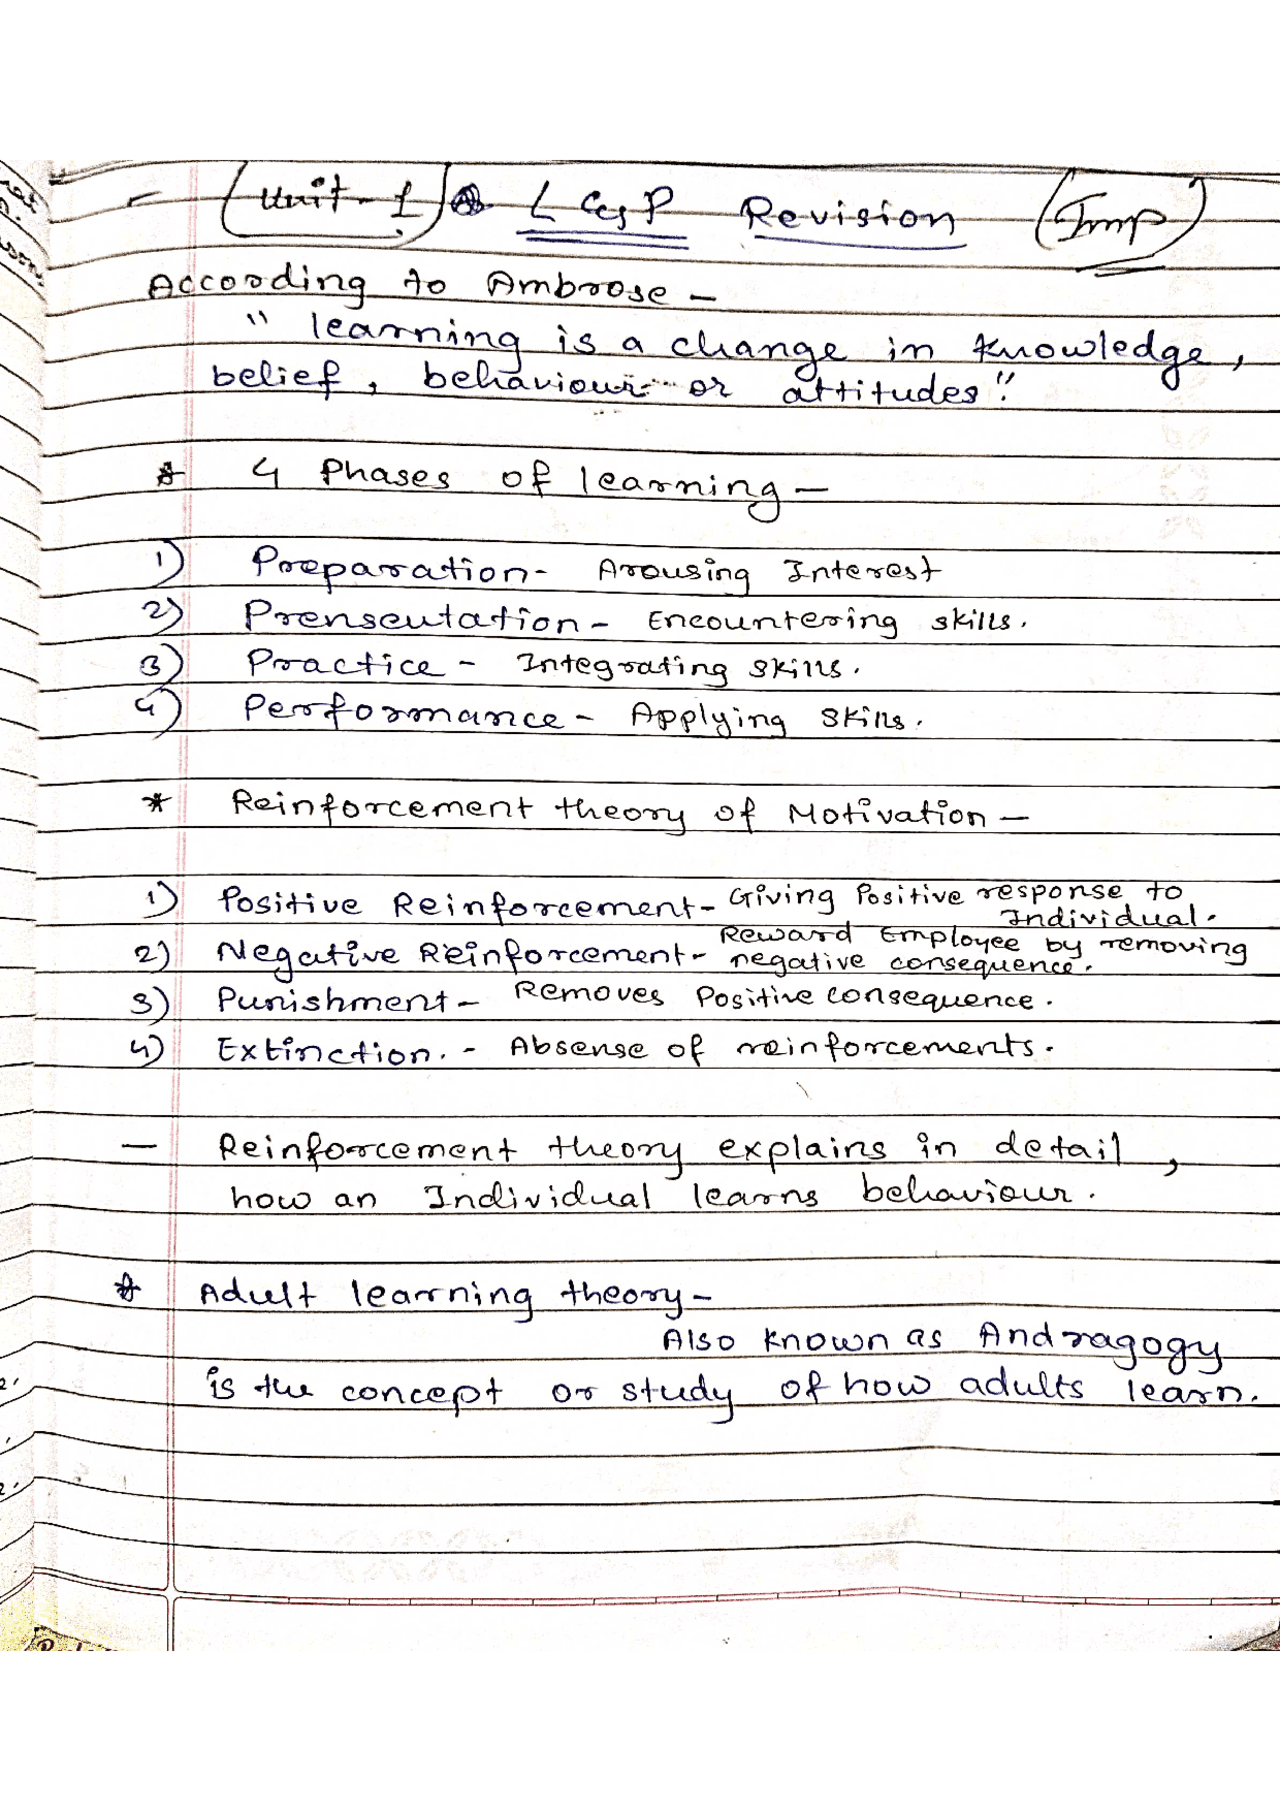 Unit-1 L&P Revision (Imp)
According to Ambrose -
" learning is a change in knowledge,
belief, behaviour or attitudes"
* 4 Phases of learning -
1) Preparation - Arousing Interest
2) Prensentation - Encountering skills.
3) Practice - Integrating skills.
4) Performance - Applying skills.
* Reinforcement theory of Motivation -
1) Positive Reinforcement - Giving Positive response to
Individual.
2) Negative Reinforcement - Reward Employee by removing
negative consequence.
3) Punishment - Removes Positive consequence.
4) Extinction. - Absense of reinforcements.
- Reinforcement theory explains in detail,
how an Individual learns behaviour.
* Adult learning theory -
Also known as Andragogy
is the concept or study of how adults learn.